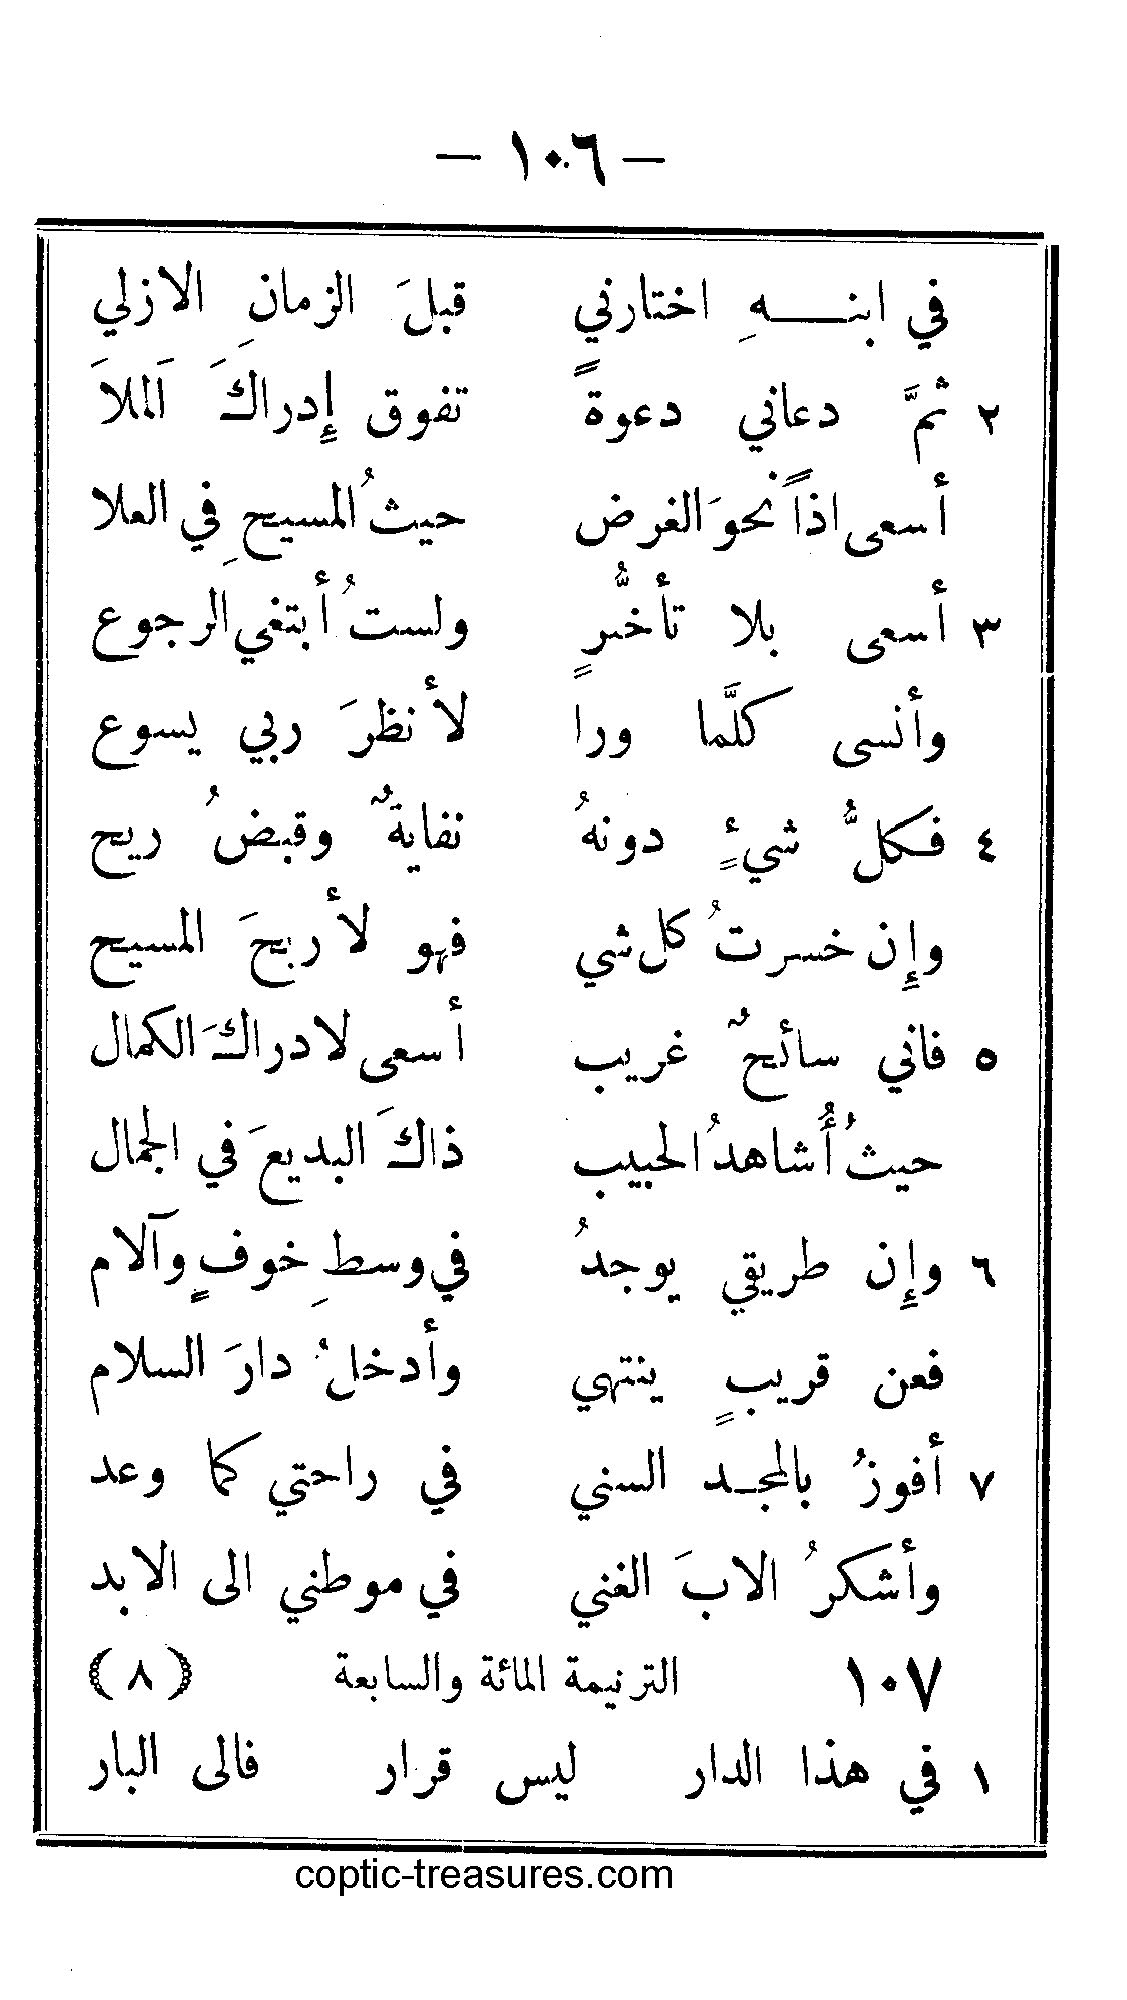 — ١٠٦ —
في ابنـــهِ اختارني قبلَ الزمانِ الازلي
٢ ثمَّ دعاني دعوةً تفوق إِدراكَ اَلملاَ
أسعى اذاً نحوَ الغرض حيثُ المسيحِ في العلا
٣ أسعى بلا تأخُّرٍ ولستُ أبتغي الرجوع
وأنسى كلَّما ورا لأنظرَ ربي يسوع
٤ فكلُّ شيءٍ دونهُ نفايةٌ وقبضُ ريح
وإِن خسرتُ كل شي فهو لأربحَ المسيح
٥ فاني سائحٌ غريب أسعى لادراكَ الكمال
حيثُ أُشاهدُ الحبيب ذاكَ البديعَ في الجمال
٦ وإِن طريقي يوجدُ في وسطِ خوفٍ وآلام
فعن قريبٍ ينتهي وأدخلُ دارَ السلام
٧ أفوزُ بالمجـد السني في راحتي كما وعد
وأشكرُ الابَ الغني في موطني الى الابد
١٠٧ الترنيمة المائة والسابعة (٨)
١ في هذا الدار ليس قرار فالى البار
coptic-treasures.com